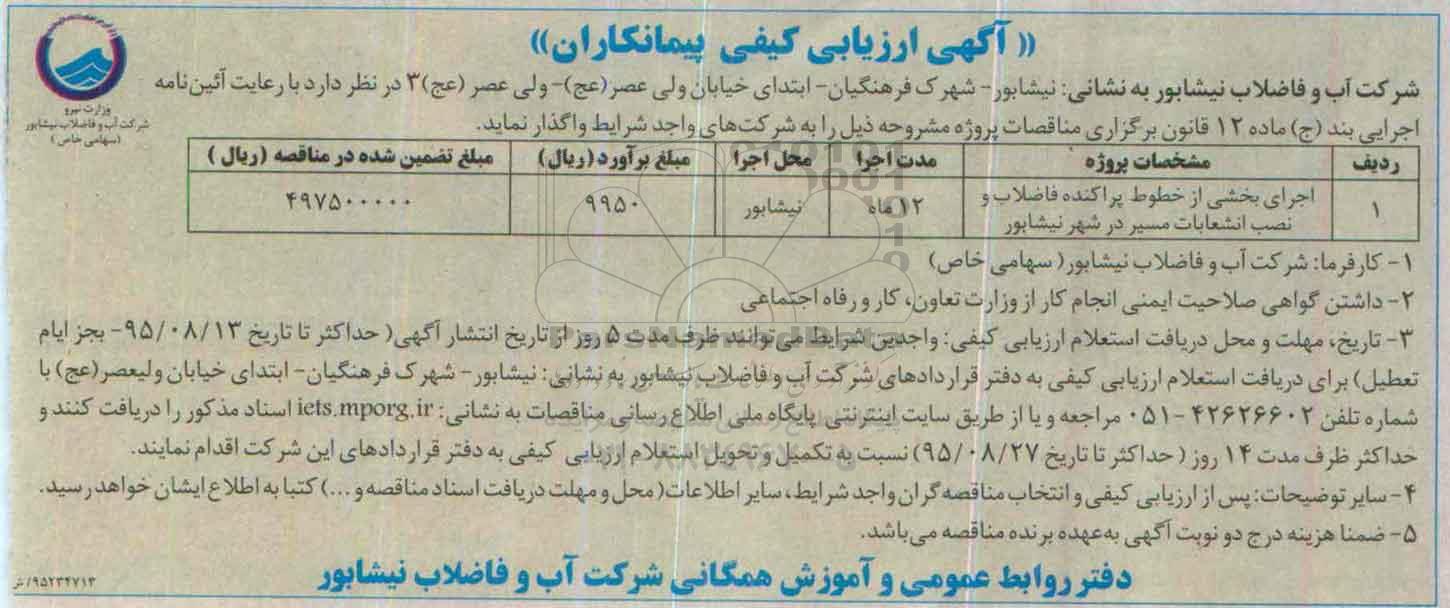 (( آگهی ارزیابی کیفی پیمانکاران))
وزارت نیرو
شرکت آب و فاضلاب نیشابور
(سهامی خاص)
شرکت آب و فاضلاب نیشابور به نشانی: نیشابور- شهرک فرهنگیان- ابتدای خیابان ولی عصر(عج)- ولی عصر (عج)۳ در نظر دارد با رعایت آئین‌نامه
اجرایی بند (ج) ماده ۱۲ قانون برگزاری مناقصات پروژه مشروحه ذیل را به شرکت‌های واجد شرایط واگذار نماید.
ردیف مشخصات پروژه مدت اجرا محل اجرا مبلغ برآورد (ریال) مبلغ تضمین شده در مناقصه (ریال)
۱ اجرای بخشی از خطوط پراکنده فاضلاب و نصب انشعابات مسیر در شهر نیشابور ۱۲ ماه نیشابور ۹۹۵۰ ۴۹۷۵۰۰۰۰۰
۱- کارفرما: شرکت آب و فاضلاب نیشابور( سهامی خاص)
۲- داشتن گواهی صلاحیت ایمنی انجام کار از وزارت تعاون، کار و رفاه اجتماعی
۳- تاریخ، مهلت و محل دریافت استعلام ارزیابی کیفی: واجدین شرایط می‌توانند ظرف مدت ۵ روز از تاریخ انتشار آگهی( حداکثر تا تاریخ ۹۵/۰۸/۱۳- بجز ایام
تعطیل) برای دریافت استعلام ارزیابی کیفی به دفتر قراردادهای شرکت آب و فاضلاب نیشابور به نشانی: نیشابور- شهرک فرهنگیان- ابتدای خیابان ولیعصر(عج) با
شماره تلفن ۴۲۶۲۶۶۰۲-۰۵۱ مراجعه و یا از طریق سایت اینترنتی پایگاه ملی اطلاع رسانی مناقصات به نشانی: iets.mporg.ir اسناد مذکور را دریافت کنند و
حداکثر ظرف مدت ۱۴ روز ( حداکثر تا تاریخ ۹۵/۰۸/۲۷) نسبت به تکمیل و تحویل استعلام ارزیابی کیفی به دفتر قراردادهای این شرکت اقدام نمایند.
۴- سایر توضیحات: پس از ارزیابی کیفی و انتخاب مناقصه گران واجد شرایط، سایر اطلاعات( محل و مهلت دریافت اسناد مناقصه و ...) کتبا به اطلاع ایشان خواهد رسید.
۵- ضمنا هزینه درج دو نوبت آگهی به‌عهده برنده مناقصه می‌باشد.
دفتر روابط عمومی و آموزش همگانی شرکت آب و فاضلاب نیشابور
۹۵۲۳۴۷۱۳/ش